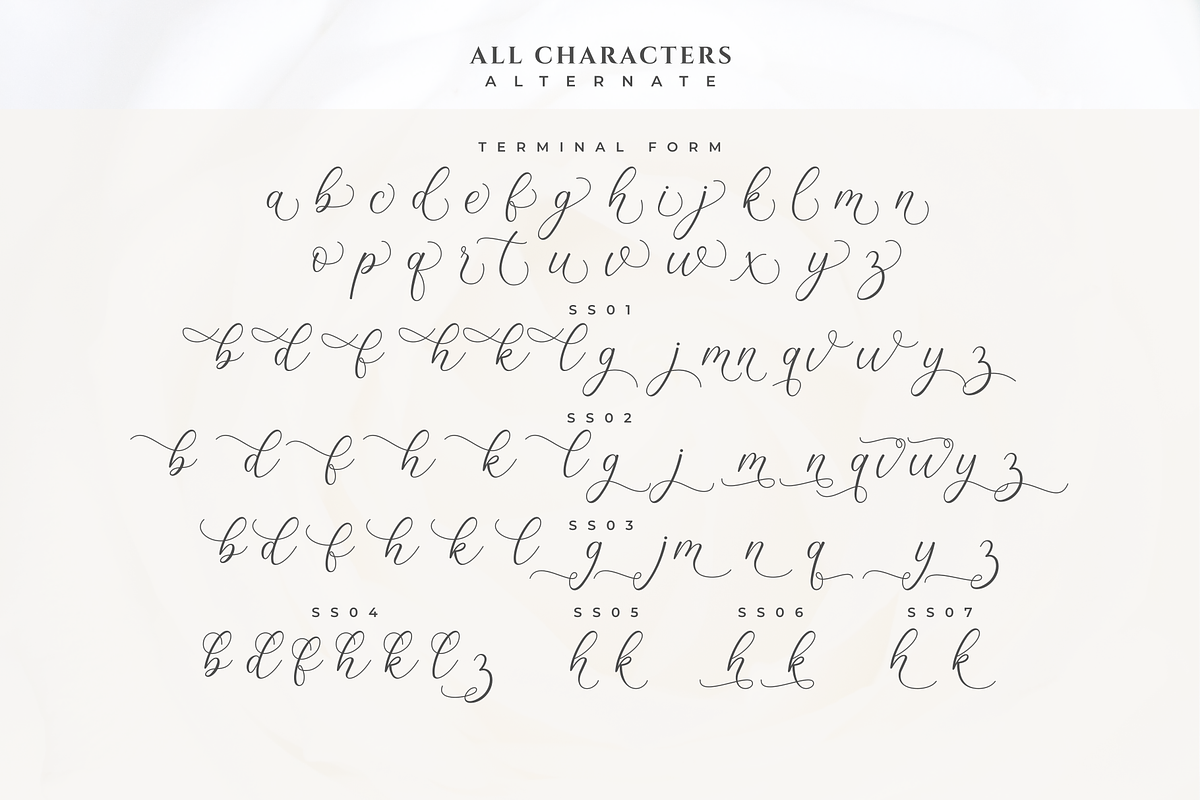 ALL CHARACTERS
ALTERNATE
TERMINAL FORM
a b c d e f g h i j k l m n
o p q r t u v w x y z
SS01
b d f h k l g j m n q v w y z
SS02
b d f h k l g j m n q v w y z
SS03
b d f h k l g j m n q y z
SS04 SS05 SS06 SS07
b d f h k l z h k h k h k